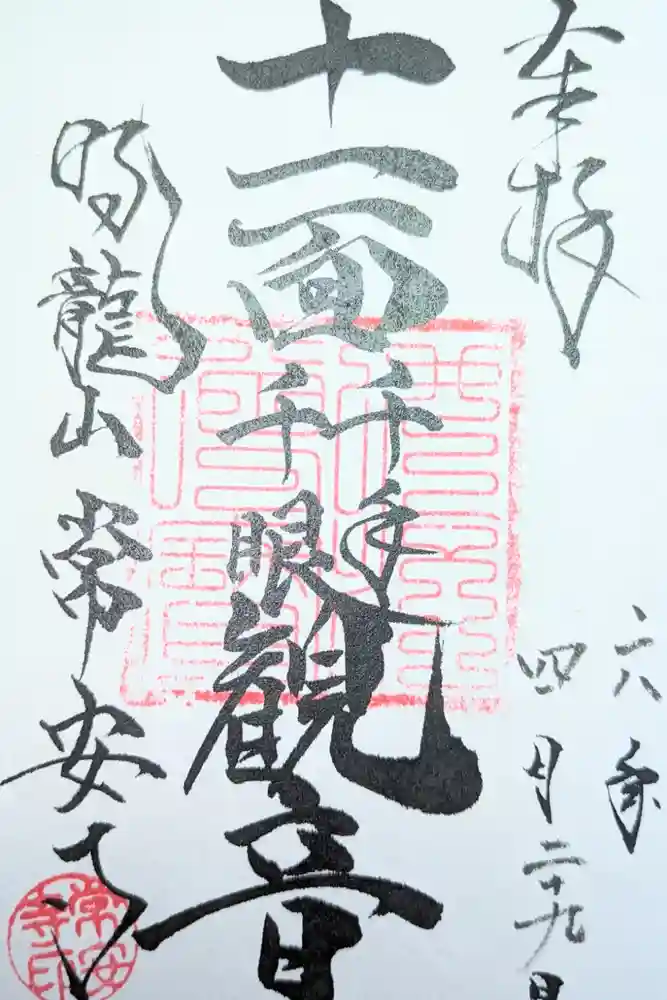 奉拝
六年
四月二十九日
十一面千手千眼観音
瑞龍山
常安寺
常安寺印